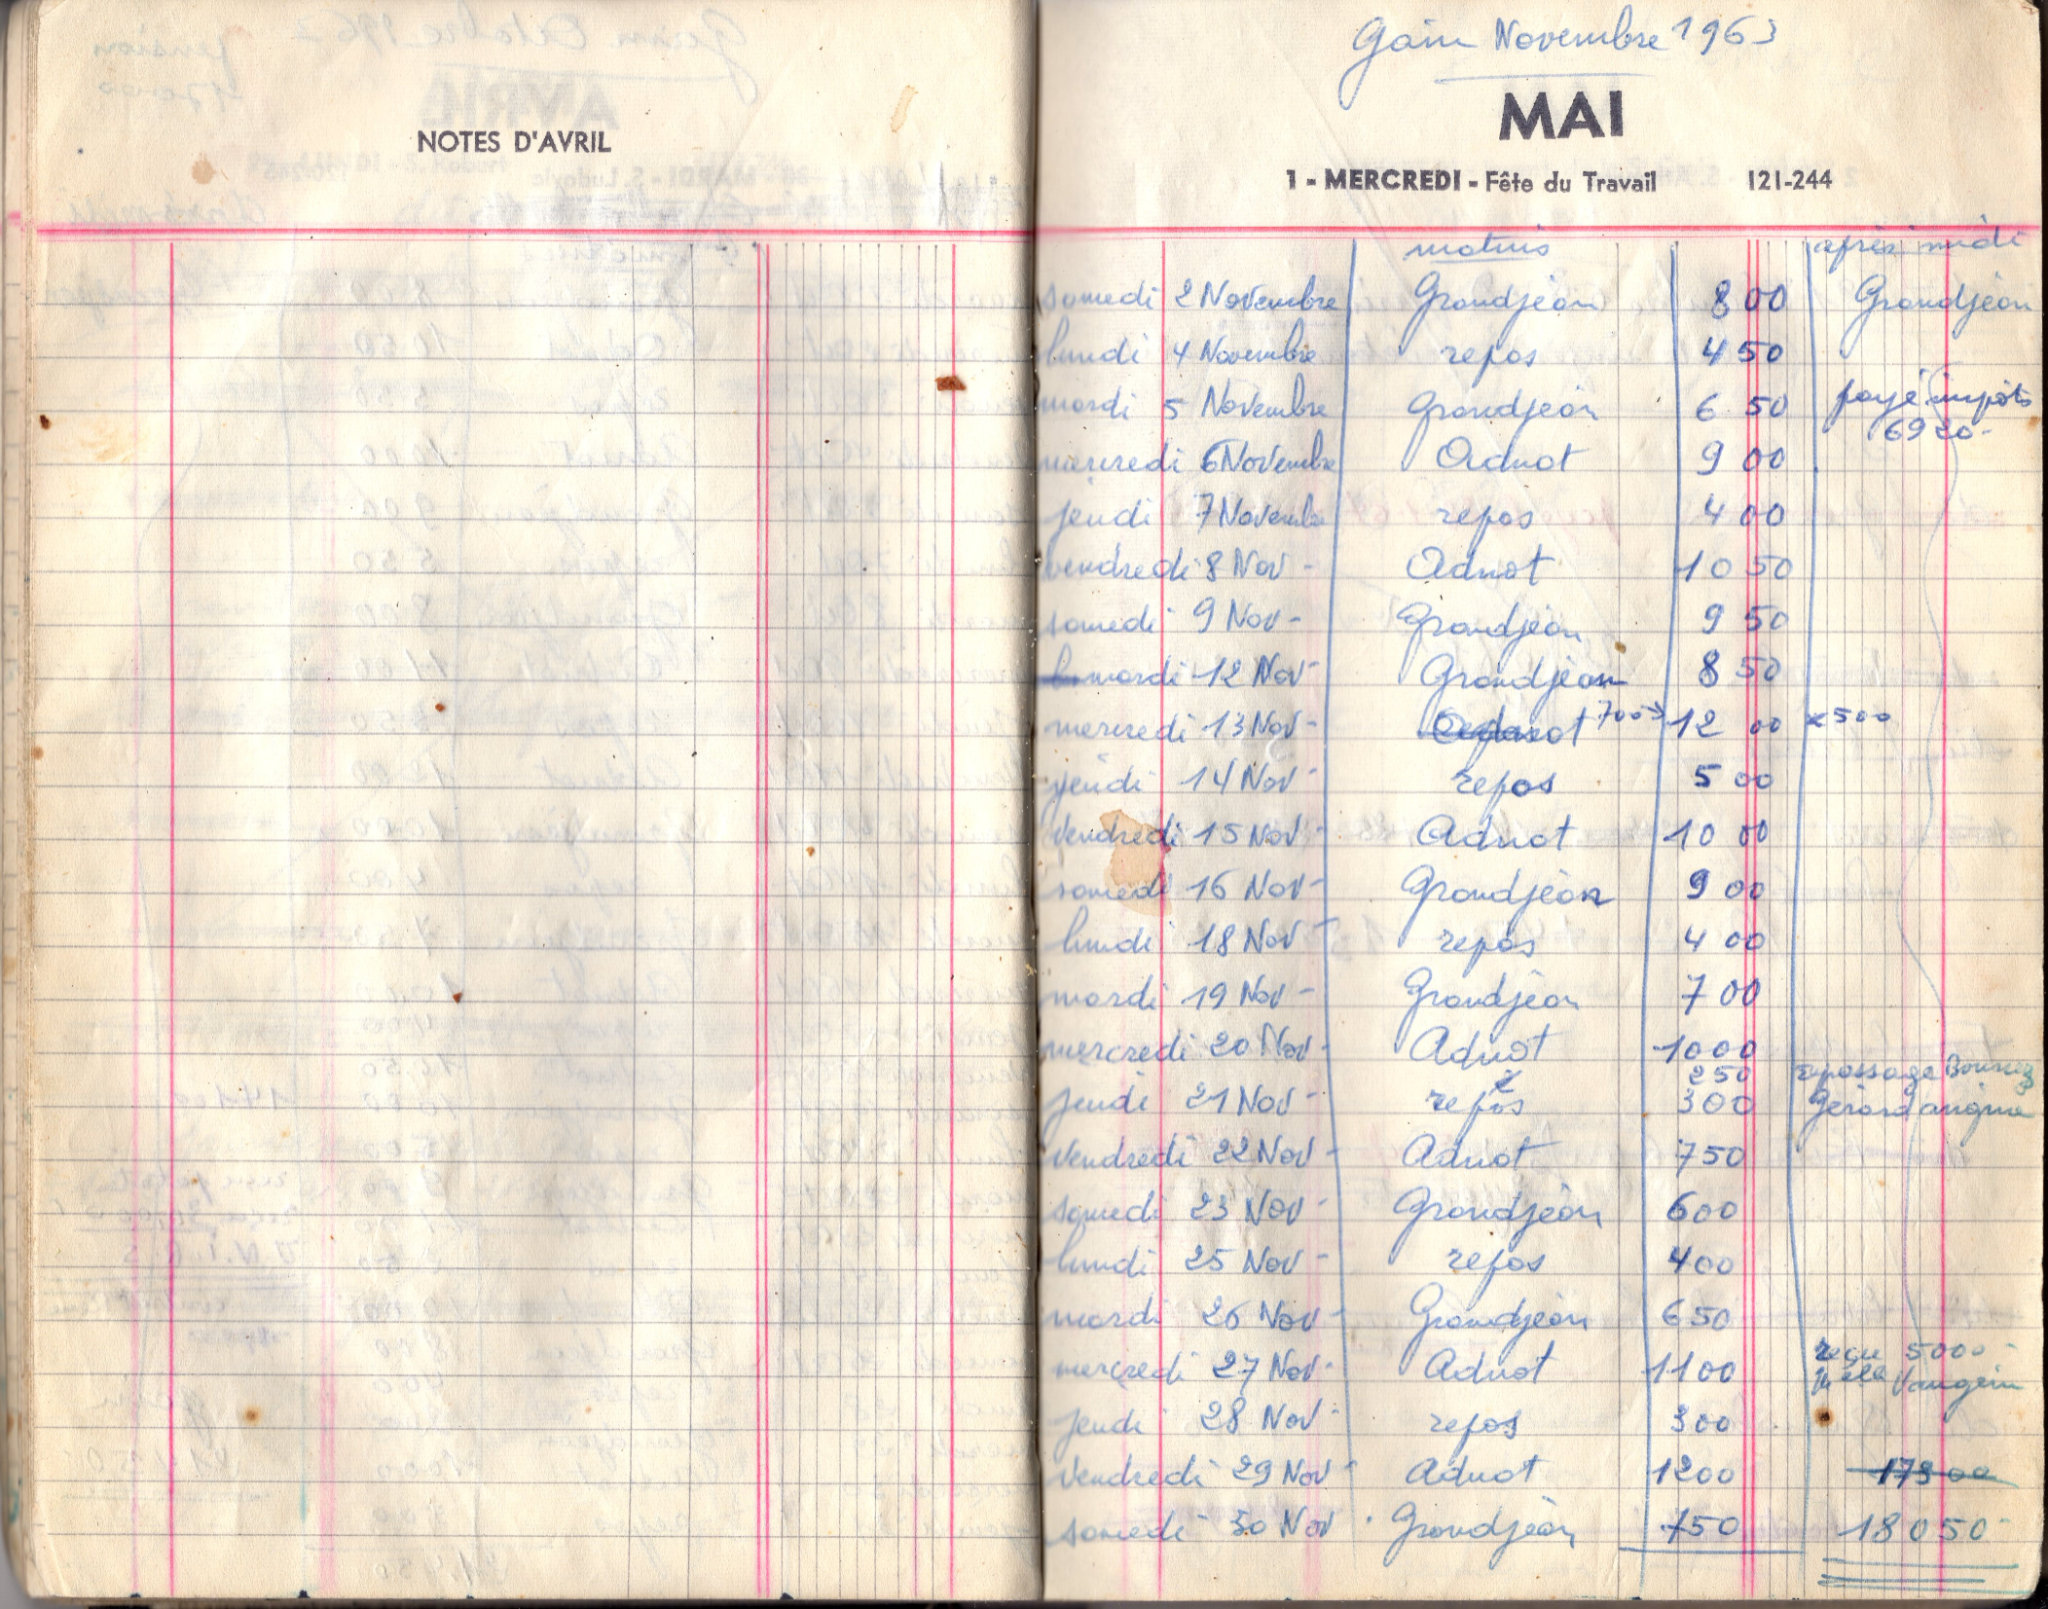 NOTES D'AVRIL
Gain Novembre 1963
MAI
1 - MERCREDI - Fête du Travail 121-244
matins après midi
samedi 2 Novembre Grandjean 800 Grandjean
lundi 4 Novembre repos 450
mardi 5 Novembre Grandjean 650 payé impôts
6920-
mercredi 6 Novembre Adnot 900
jeudi 7 Novembre repos 400
vendredi 8 Nov - Adnot 1050
samedi 9 Nov - Grandjean 950
mardi 12 Nov - Grandjean 850
mercredi 13 Nov - Adnot 700 1200 500
jeudi 14 Nov - repos 500
vendredi 15 Nov - Adnot 1000
samedi 16 Nov - Grandjean 900
lundi 18 Nov - repos 400
mardi 19 Nov - Grandjean 700
mercredi 20 Nov - Adnot 1000
250 repassage
jeudi 21 Nov - repos 300 Gérard angine
vendredi 22 Nov - Adnot 750
samedi 23 Nov - Grandjean 600
lundi 25 Nov - repos 400
mardi 26 Nov - Grandjean 650
reçu 5000 -
mercredi 27 Nov - Adnot 1100 Vaugein
jeudi 28 Nov - repos 300
vendredi 29 Nov - Adnot 1200 17300
samedi 30 Nov - Grandjean 750 18050-